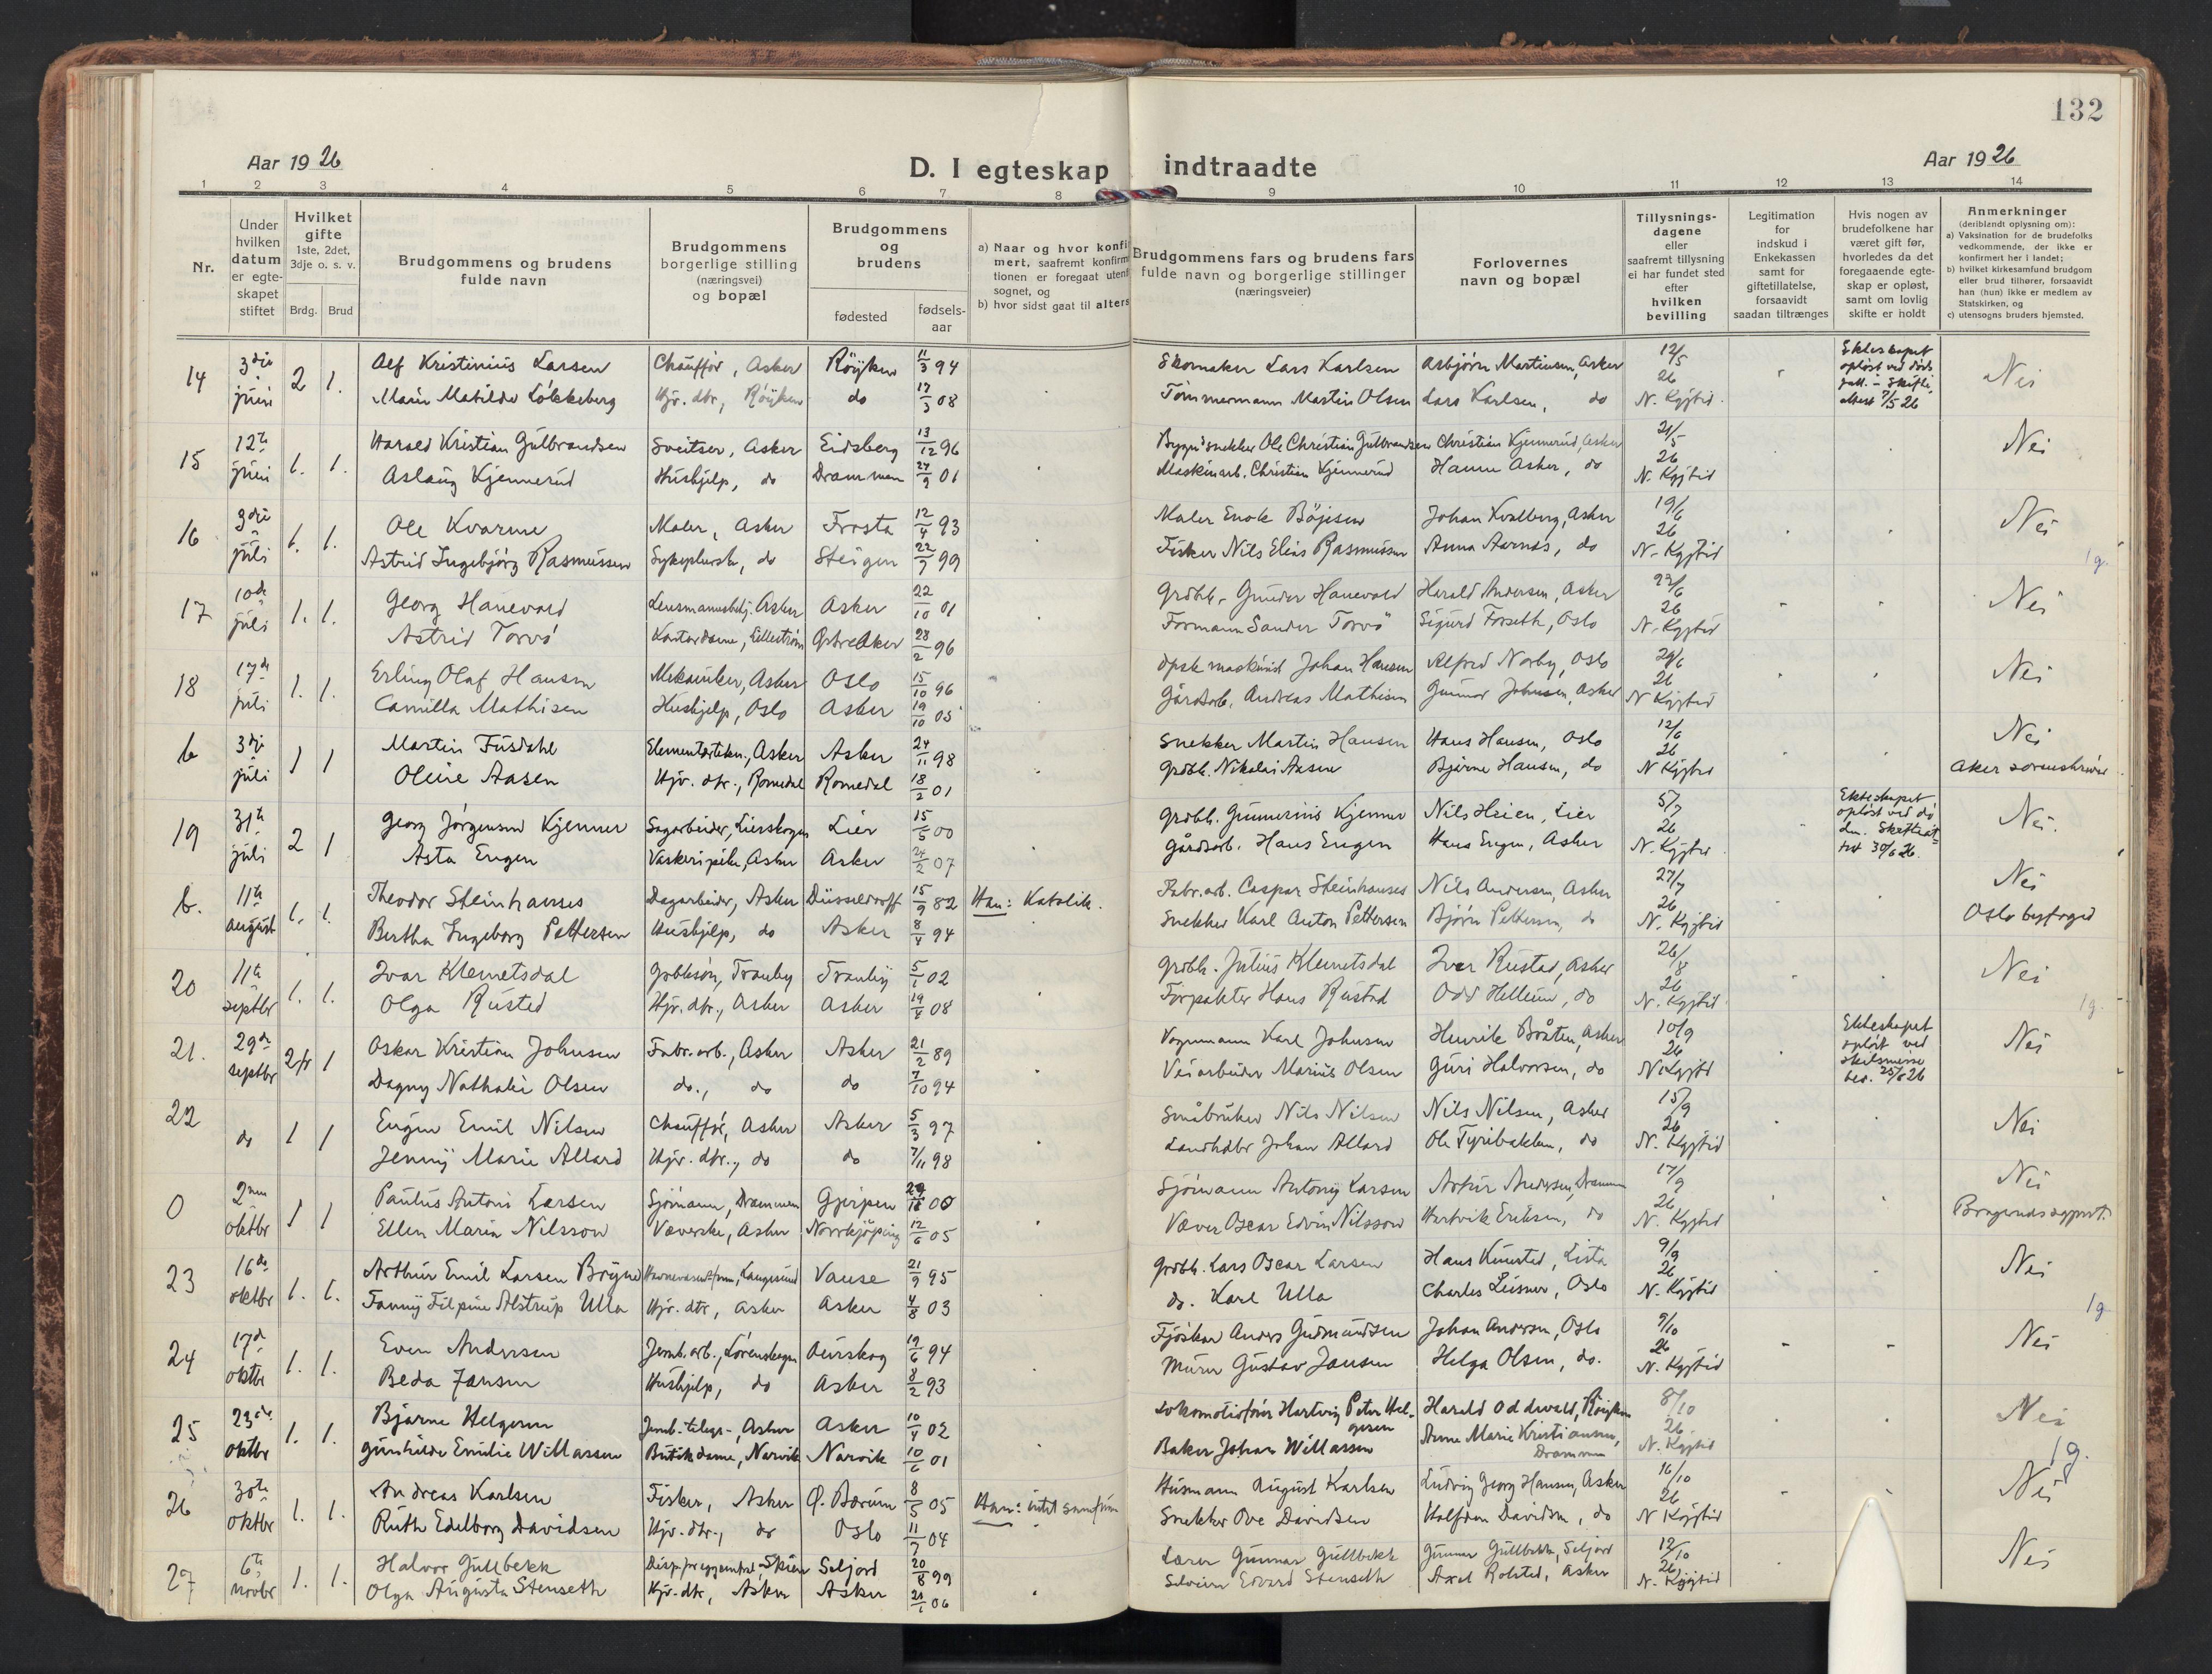 132
Aar 19 26
D. I egteskap indtraadte
Aar 19 26
1 2 3 4 5 6 7 8 9 10 11 12 13 14
Nr.
Under hvilken datum er egteskapet stiftet
Hvilket gifte 1ste, 2det, 3dje o. s. v.
Brdg. Brud
Brudgommens og brudens fulde navn
Brudgommens borgerlige stilling (næringsvei) og bopæl
Brudgommens og brudens
fødested
fødsels-aar
a) Naar og hvor konfi
mert, saafremt konfirm
tionen er foregaat uten
sognet, og
b) hvor sidst gaat til alters
Brudgommens fars og brudens fars fulde navn og borgerlige stillinger (næringsveier)
Forlovernes navn og bopæl
Tillysnings-dagene eller saafremt tillysning ei har fundet sted efter hvilken bevilling
Legitimation for indskud i Enkekassen samt for giftetillatelse, forsaavidt saadan tiltrænges
Hvis nogen av brudefolkene har været gift før, hvorledes da det foregaaende egteskap er opløst, samt om lovlig skifte er holdt
Anmerkninger
(deriblandt oplysning om):
a) Vaksination for de brudefolks vedkommende, der ikke er konfirmert her i landet;
b) hvilket kirkesamfund brudgom eller brud tilhører, forsaavidt han (hun) ikke er medlem av Statskirken, og
c) utensogns bruders hjemsted.
14 3die juni 2 1. Alf Kristinius Larsen Chauffør, Asker Röyken 11/3 94 Skomaker Lars Karlsen Asbjörn Martinsen, Asker 12/5 26 Nei
Marie Matilde Lökkeberg Hjv. dtr., Röyken do 17/3 08 Tömmermann Martin Olsen Lars Karlsen, do N. Kgjtid
15 12te juni 1. 1. Harald Kristian Gulbrandsen Sveitser, Asker Eidsberg 13/12 96 Byggn.snekker Ole Christian Gulbrandsen Christian Kjennerud, Asker 21/5 26 Nei
Aslaug Kjennerud Hushjelp, do Drammen 01 Maskinarb. Christian Kjennerud Hanna Asker, do N. Kgjtid
16 3die juli 1. 1. Ole Kvarme Maler, Asker Frosta 12/4 93 Maler Enok Böjesen Johan Kvalberg, Asker 19/6 26 Nei
Astrid Ingebjörg Rasmussen do Steigen 22/7 99 Fisker Nils Elias Rasmussen Anna Aarnes, do N. Kgjtid
17 10de juli 1. 1. Georg Hanevold Lensmannsbetj. Asker Asker 22/10 01 Grdbr. Gunder Hanevold Harald Andersen, Asker 26 Nei
Astrid Torvö Kontordame, Lilleström Östre Aker 28/2 96 Formann Sander Torvö Sigurd Forseth, Oslo N. Kgjtid
18 17de juli 1. 1. Erling Olaf Hansen Mekaniker, Asker Oslo 15/10 96 Johan Hansen Alfred Norby, Oslo 29/6 26 Nei
Camilla Mathisen Hushjelp, Oslo Asker 19/10 05 Gårdsarb. Andreas Mathisen Gunnar Johnsen, Asker N Kgjtid
b 3die juli 1 1 Martin Fusdahl Asker Asker 24/11 98 Snekker Martin Hansen Hans Hansen, Oslo 12/6 26 Nei
Oline Aasen Hjv. dtr., Romedal Romedal 18/2 01 Grdbr. Nikolai Aasen Bjarne Hansen, do N Kgjtid Aker sorenskriver
19 31te juli 2 1 Georg Jörgensen Kjenner Sagarbeider, Lierskogen Lier 15/5 00 Grdbr. Gunnerius Kjenner Nils Hsien, Lier 5/7 26 Nei.
Asta Engen Asker Asker 24/2 07 Gårdsarb. Hans Engen Hans Engen, Asker N. Kgjtid
b. 11te august 1. 1. Theodor Steinhauses Dagarbeider, Asker Düsseldorff 15/9 82 Han: Katolik. Fabr.arb. Caspar Steinhauses Nils Andersen, Asker 27/7 26 Nei
Bertha Ingeborg Pettersen Hushjelp, do Asker 8/4 94 Snekker Karl Anton Pettersen Björn Pettersen, do N. Kgjtid Oslo byfoged
20 11te septbr 1. 1. Ivar Klemetsdal Tranby Tranby 5/1 02 Grdbr. Julius Klemetsdal Ivar Rustad, Asker 26/8 26 Nei
Olga Rustad Hjv. dtr., Asker Asker 19/4 08 Forpakter Hans Rustad Odd Hellum, do N. Kgjtid
21. 29de septbr 1 Oskar Kristian Johnsen Fabr. arb., Asker Asker 21/2 89 Vognmann Karl Johnsen Henrik Bråten, Asker 10/9 26 Ekteskapet opløst ved skilsmisse bev. 25/8 26 Nei
Dagny Nathalie Olsen do., do do 7/10 94 Veiarbeider Marius Olsen Guri Halvorsen, do N Kgjtd
22 do 1 1 Eugen Emil Nilsen Chauffør, Asker Asker 5/3 97 Småbruker Nils Nilsen Nils Nilsen, Asker 15/9 26 Nei
Jenny Marie Allard Hjv. dtr., do do 7/11 98 Landhdlr Johan Allard Ole Tyribakken, do N. Kgjtid
0 2nen oktbr 1 1 Paulus Antoni Larsen Sjömann, Drammen Gjerpen 00 Sjömann Antony Larsen Artur Andersen, Drammen 17/9 26 Nei
Ellen Maria Nilsson Væverske, Asker Norrkjöping 12/6 05 Væver Oscar Edvin Nilsson Hartvik Eriksen, do N. Kgjtid
23 16de oktbr 1. 1. Arthur Emil Larsen Bryne Langesund Vanse 21/9 95 Grdbr. Lars Oscar Larsen Hans Lista 9/9 26 Nei
Fanny Filpine Alstrup Ulla Hjv. dtr, Asker Asker 4/8 03 do. Karl Ulla Charles Leisner, Oslo N. Kgjtid
24 17de oktbr 1. 1. Even Andersen Jernb. arb., Lörenskogen Aurskog 19/6 94 Fjöskar Anders Gudmundsen Johan Andersen, Oslo 9/10 26 Nei
Beda Jansen Hushjelp, do Asker 8/2 93 Murer Gustav Jansen Helga Olsen, do. N. Kgjtid
25 23de oktbr 1. 1. Bjarne Helgesen Jernb. telegr., Asker Asker 10/4 02 Lokomotivförer Hartvig Peter Helgesen Harald Oddevald, Röyken 8/10 26 Nei
Gunhilde Emilie Willassen Butikdame, Narvik Narvik 10/6 01 Baker Johan Willassen Anne Marie Kristiansen, Drammen N. Kgjtid
26 30te oktbr 1. 1. Andreas Karlsen Fisker, Asker Ø. Bærum 8/5 05 Han: intet samfunn Husmann August Karlsen Ludvig Georg Hansen, Asker 16/10 26 Nei
Ruth Edelborg Davidsen Hjv. dtr., do Oslo 11/7 04 Snekker Ove Davidsen Halfdan Davidsen, do N Kgjtid
27 6te novbr 1. 1. Halvor Gullbekk Skien Seljord 20/8 99 Lærer Gunnar Gullbekk Gunnar Gullbekk, Seljord 12/10 26 Nei
Olga Augusta Stenseth Hjv. dtr, Asker Asker 06 Edvard Stenseth Axel Rolstad, Asker N. Kgjtid